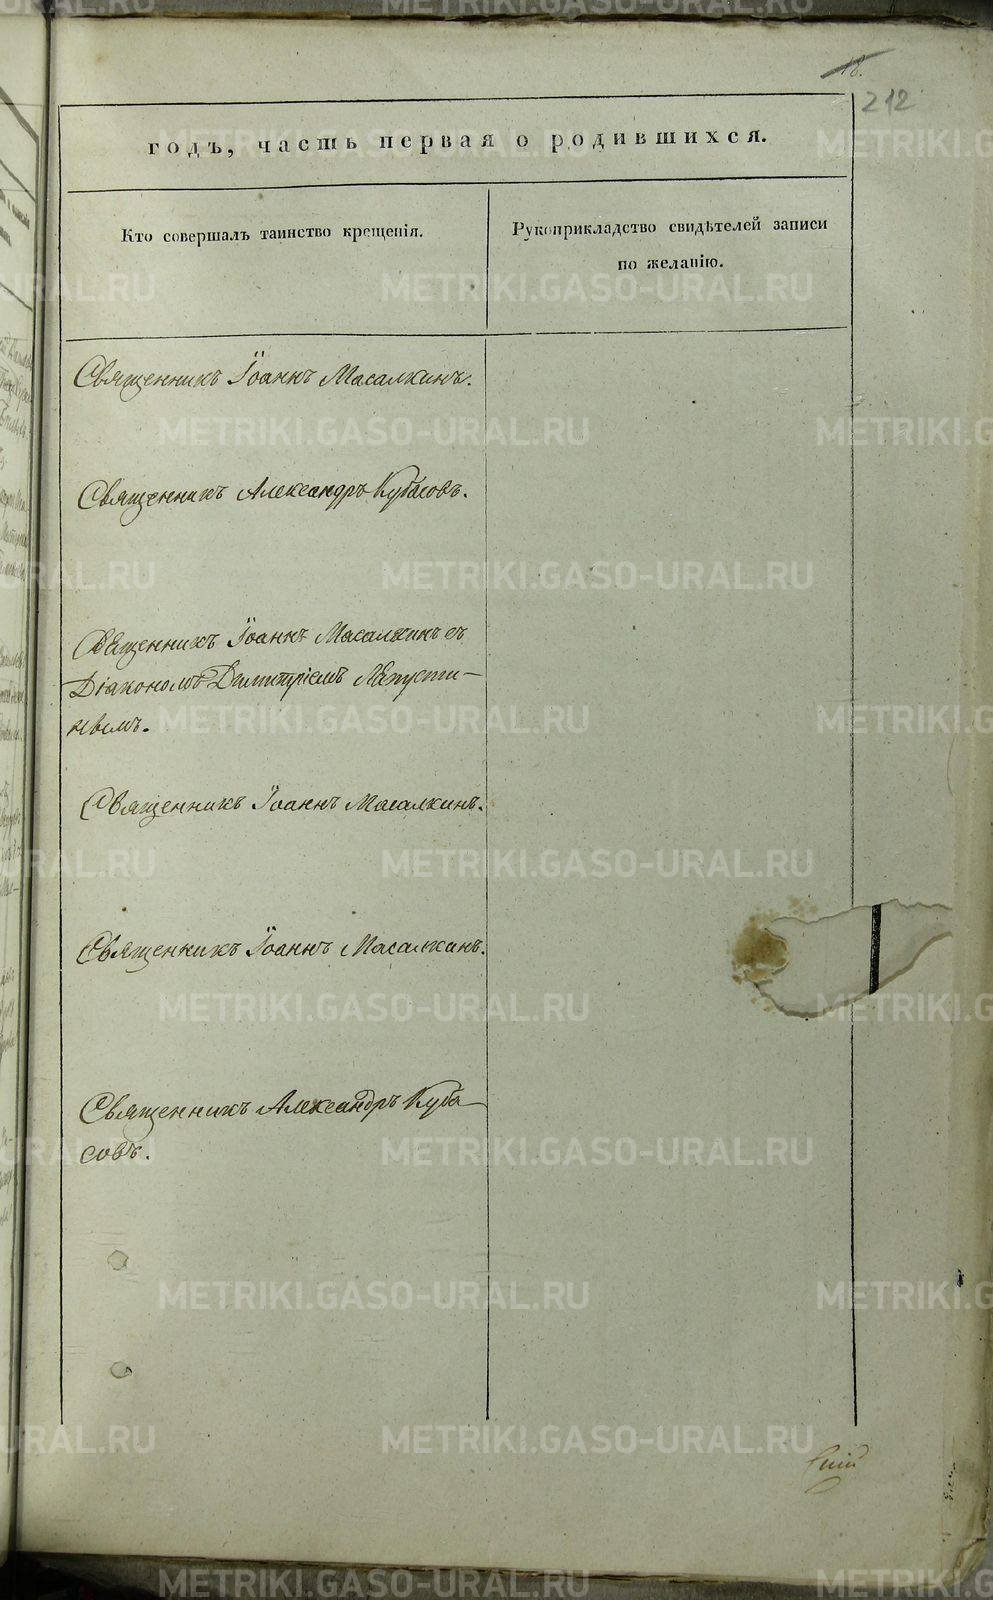 18.
212
годъ, часть первая о родившихся.
Кто совершалъ таинство крещенія.
Рукоприкладство свидѣтелей записи
по желанію.
Священникъ Іоаннъ Масалкинъ.
Священникъ Александръ Кубасовъ.
Священникъ Іоаннъ Масалкинъ съ
Діакономъ Димитріемъ Ляпусти-
нымъ.
Священникъ Іоаннъ Масалкинъ.
Священникъ Іоаннъ Масалкинъ.
Священникъ Александръ Куба-
совъ.
METRIKI.GASO-URAL.RU